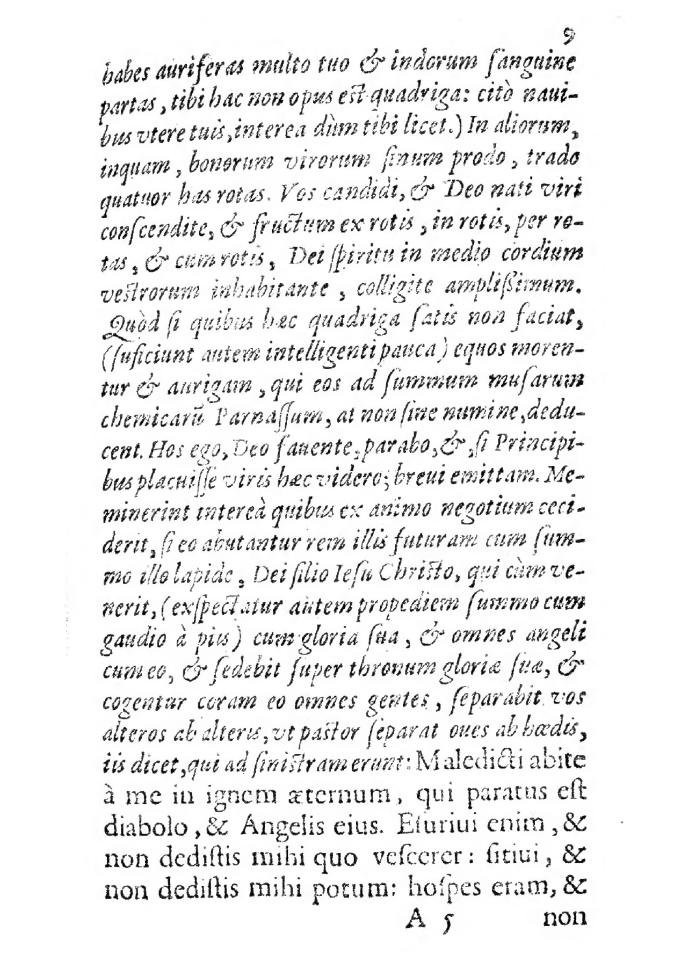 9
habes auriferas multo tuo & indorum ſanguine
partas, tibi hac non opus eſt quadriga: citò naui-
bus vtere tuis, interea dùm tibi licet.) In aliorum,
inquam, bonorum virorum ſinum prodo, trado
quatuor has rotas. Vos candidi, & Deo nati viri
conſcendite, & fructum ex rotis, in rotis, per ro-
tas, & cum rotis, Dei ſpiritu in medio cordium
veſtrorum inhabitante, colligite ampliſſimum.
Quòd ſi quibus hæc quadriga ſatis non faciat,
(ſuficiunt autem intelligenti pauca) equos moren-
tur & aurigam, qui eos ad ſummum muſarum
chemicarũ Parnaſſum, at non ſine numine, dedu-
cent. Hos ego, Deo fauente, parabo, &, ſi Principi-
bus placuiſſe viris hæc videro; breui emittam. Me-
minerint intereà quibus ex animo negotium ceci-
derit, ſi eo abutantur rem illis futuram cum ſum-
mo illo lapide, Dei filio Ieſu Chriſto, qui cùm ve-
nerit, (exſpectatur autem propediem ſummo cum
gaudio à piis) cum gloria ſua, & omnes angeli
cum eo, & ſedebit ſuper thronum gloriæ ſuæ, &
cogentur coram eo omnes gentes, ſeparabit vos
alteros ab alteris, vt paſtor ſeparat oues ab hœdis,
iis dicet, qui ad ſiniſtram erunt: Maledicti abite
à me in ignem æternum, qui paratus eſt
diabolo, & Angelis eius. Eſuriui enim, &
non dediſtis mihi quo veſcerer: ſitiui, &
non dediſtis mihi potum: hoſpes eram, &
A 5 non